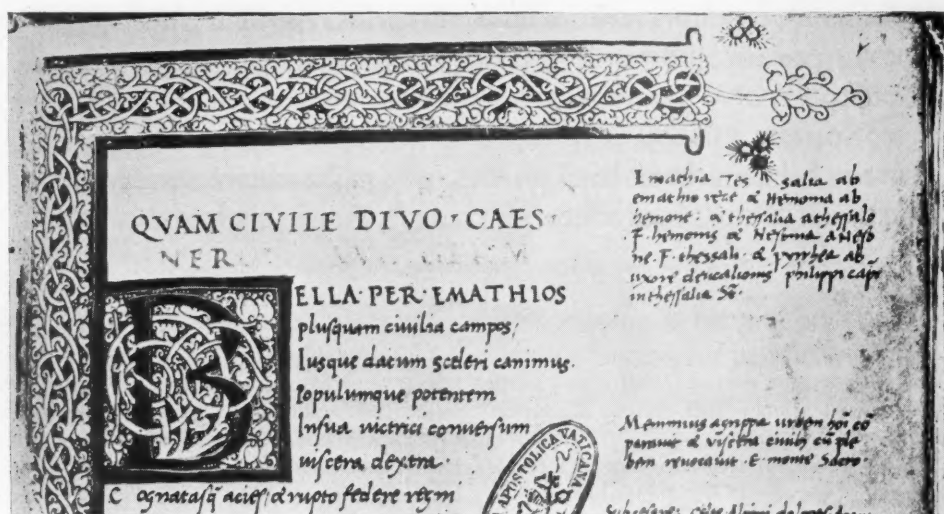 QVAM CIVILE DIVO · CAES ·
NER
BELLA · PER · EMATHIOS
plusquam ciuilia campos;
Iusque datum sceleri canimus.
Populumque potentem
Insua uictrici conuersum
uiscera dextra.
C ognatasq; acies, & rupto federe regni
Emathia Tes salia ab
emathio rege & Hemonia ab
hemone. & thessalia athessalo
F. hemonis &
ne. F. thessali. & pyrrhea ab
uxore deucalionis philippi
inthessalia
agrippa urbem
& uiscera
bem reuocauit. E. monte Sacro
APOSTOLICA VATICANA